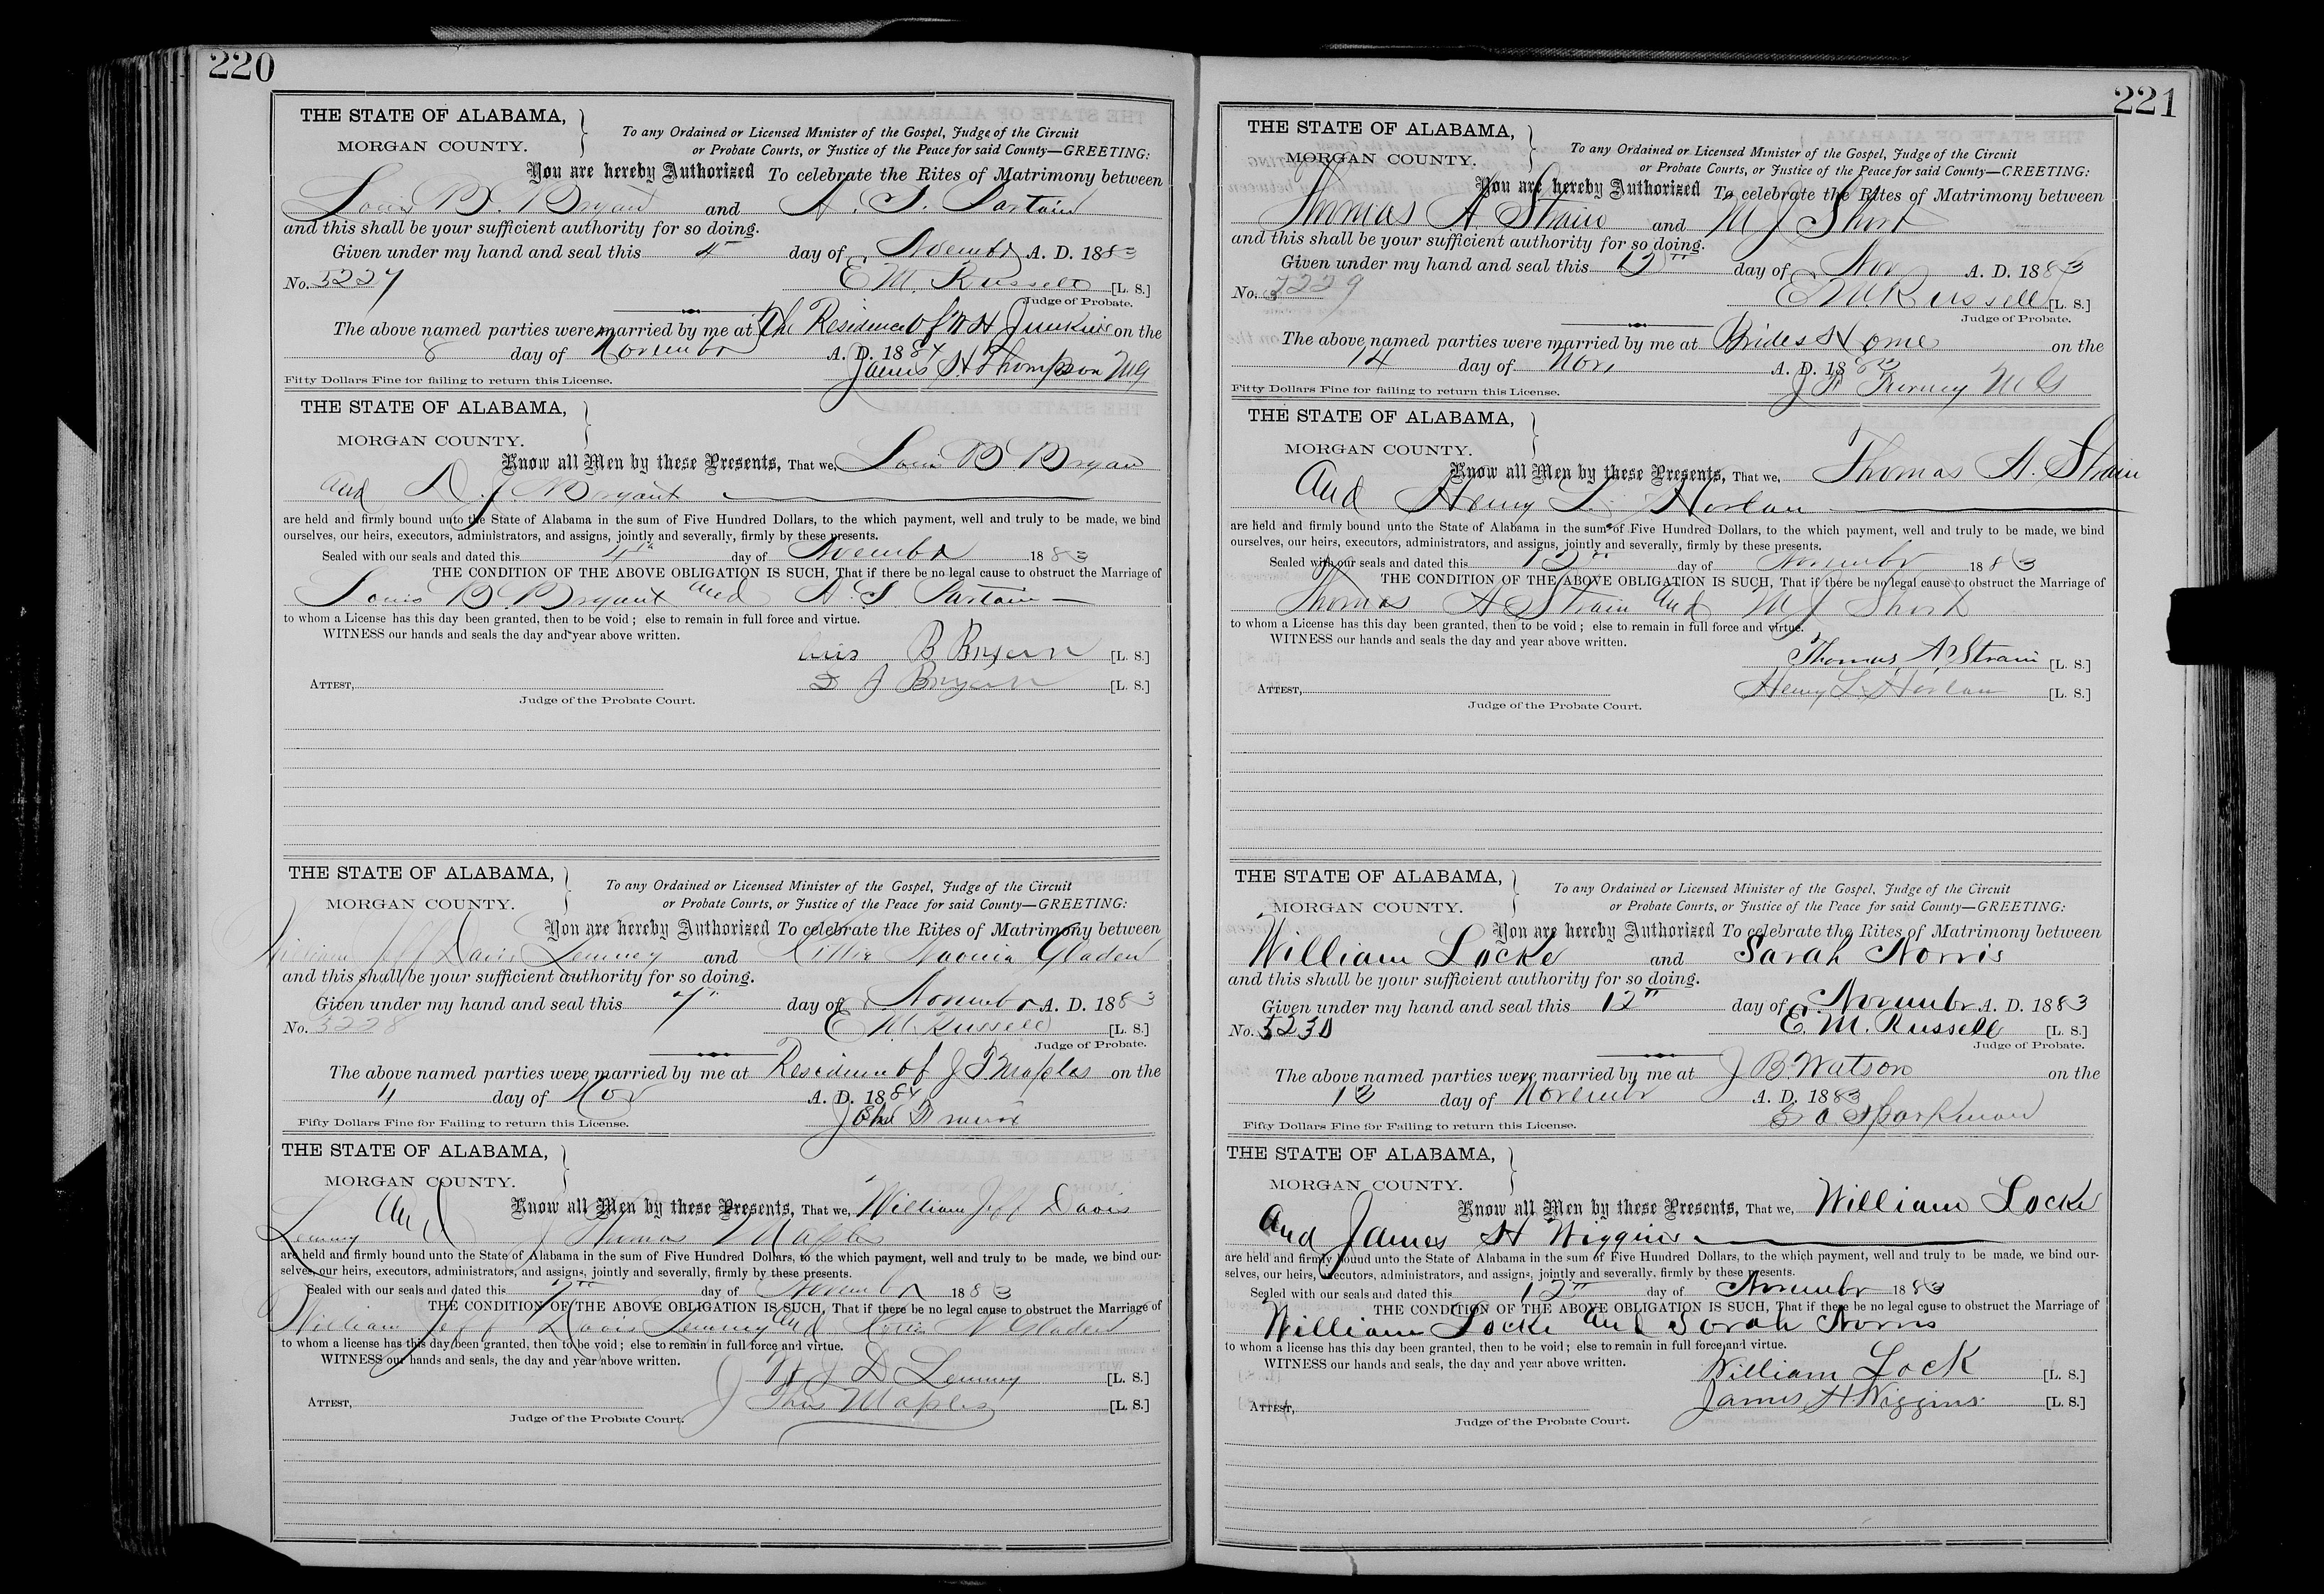 220
THE STATE OF ALABAMA,
MORGAN COUNTY.
To any Ordained or Licensed Minister of the Gospel, Judge of the Circuit
or Probate Courts, or Justice of the Peace for said County—GREETING:
You are hereby Authorized To celebrate the Rites of Matrimony between
Louis B. Bryant and A. S. Sartain
and this shall be your sufficient authority for so doing.
Given under my hand and seal this day of Novembr A. D. 1883
No. 3227 E M. Russell [L. S.]
Judge of Probate.
The above named parties were married by me at The Residence of W H Junkins on the
8 day of Novembr A. D. 1884
James H Thompson MG
Fifty Dollars Fine for failing to return this License.
THE STATE OF ALABAMA,
MORGAN COUNTY.
Know all Men by these Presents, That we, Louis B Bryant
and D. J. Bryant
are held and firmly bound unto the State of Alabama in the sum of Five Hundred Dollars, to the which payment, well and truly to be made, we bind
ourselves, our heirs, executors, administrators, and assigns, jointly and severally, firmly by these presents.
Sealed with our seals and dated this day of Novembr 1883
THE CONDITION OF THE ABOVE OBLIGATION IS SUCH, That if there be no legal cause to obstruct the Marriage of
Louis B. Bryant and A. S. Sartain
to whom a License has this day been granted, then to be void; else to remain in full force and virtue.
WITNESS our hands and seals the day and year above written.
B Bryan [L. S.]
D J Bryan [L. S.]
ATTEST,
Judge of the Probate Court.
THE STATE OF ALABAMA,
MORGAN COUNTY.
To any Ordained or Licensed Minister of the Gospel, Judge of the Circuit
or Probate Courts, or Justice of the Peace for said County—GREETING:
You are hereby Authorized To celebrate the Rites of Matrimony between
William Jeff Davis Lemmey and Naomia Gladen
and this shall be your sufficient authority for so doing.
Given under my hand and seal this 7" day of Novembr A. D. 1883
No. 3228 E. M. Russell [L. S.]
Judge of Probate.
The above named parties were married by me at Residence of J T Maples on the
11 day of Nov A. D. 1884
John
Fifty Dollars Fine for Failing to return this License.
THE STATE OF ALABAMA,
MORGAN COUNTY.
Know all Men by these Presents, That we, William Jeff Davis
Lemmy And J Thomas Maples
are held and firmly bound unto the State of Alabama in the sum of Five Hundred Dollars, to the which payment, well and truly to be made, we bind our-
selves, our heirs, executors, administrators, and assigns, jointly and severally, firmly by these presents.
Sealed with our seals and dated this 7" day of Novembr 1883
THE CONDITION OF THE ABOVE OBLIGATION IS SUCH, That if there be no legal cause to obstruct the Marriage of
William Jeff Davis Lemmy and N Gladen
to whom a license has this day been granted, then to be void; else to remain in full force and virtue.
WITNESS our hands and seals, the day and year above written.
W J D Lemmy [L. S.]
J Thos Maples [L. S.]
ATTEST,
Judge of the Probate Court.
221
THE STATE OF ALABAMA,
MORGAN COUNTY.
To any Ordained or Licensed Minister of the Gospel, Judge of the Circuit
or Probate Courts, or Justice of the Peace for said County—GREETING:
You are hereby Authorized To celebrate the Rites of Matrimony between
Thomas A Strain and M J Short
and this shall be your sufficient authority for so doing.
Given under my hand and seal this 12" day of Nov A. D. 1883
No. 3229 E M Russell [L. S.]
Judge of Probate.
The above named parties were married by me at Brides Home on the
14 day of Nov, A. D. 1883
J F MG
Fifty Dollars Fine for failing to return this License.
THE STATE OF ALABAMA,
MORGAN COUNTY.
Know all Men by these Presents, That we, Thomas A. Strain
And Henry L. Horlan
are held and firmly bound unto the State of Alabama in the sum of Five Hundred Dollars, to the which payment, well and truly to be made, we bind
ourselves, our heirs, executors, administrators, and assigns, jointly and severally, firmly by these presents.
Sealed with our seals and dated this 12" day of Novembr 1883
THE CONDITION OF THE ABOVE OBLIGATION IS SUCH, That if there be no legal cause to obstruct the Marriage of
Thomas A Strain and M J Short
to whom a License has this day been granted, then to be void; else to remain in full force and virtue.
WITNESS our hands and seals the day and year above written.
Thomas A Strain [L. S.]
Henry L. Horlan [L. S.]
ATTEST,
Judge of the Probate Court.
THE STATE OF ALABAMA,
MORGAN COUNTY.
To any Ordained or Licensed Minister of the Gospel, Judge of the Circuit
or Probate Courts, or Justice of the Peace for said County—GREETING:
You are hereby Authorized To celebrate the Rites of Matrimony between
William Locke and Sarah Norris
and this shall be your sufficient authority for so doing.
Given under my hand and seal this 12" day of Novembr A. D. 1883
No. 3230 E. M. Russell [L. S.]
Judge of Probate.
The above named parties were married by me at J B. Watson on the
13 day of Novembr A. D. 1883
Sparkman
Fifty Dollars Fine for Failing to return this License.
THE STATE OF ALABAMA,
MORGAN COUNTY.
Know all Men by these Presents, That we, William Locke
and James H Wiggins
are held and firmly bound unto the State of Alabama in the sum of Five Hundred Dollars, to the which payment, well and truly to be made, we bind our-
selves, our heirs, executors, administrators, and assigns, jointly and severally, firmly by these presents.
Sealed with our seals and dated this 12" day of Novembr 1883
THE CONDITION OF THE ABOVE OBLIGATION IS SUCH, That if there be no legal cause to obstruct the Marriage of
William Locke and Sarah Norris
to whom a license has this day been granted, then to be void; else to remain in full force and virtue.
WITNESS our hands and seals, the day and year above written.
William Lock [L. S.]
James H Wiggins [L. S.]
ATTEST,
Judge of the Probate Court.